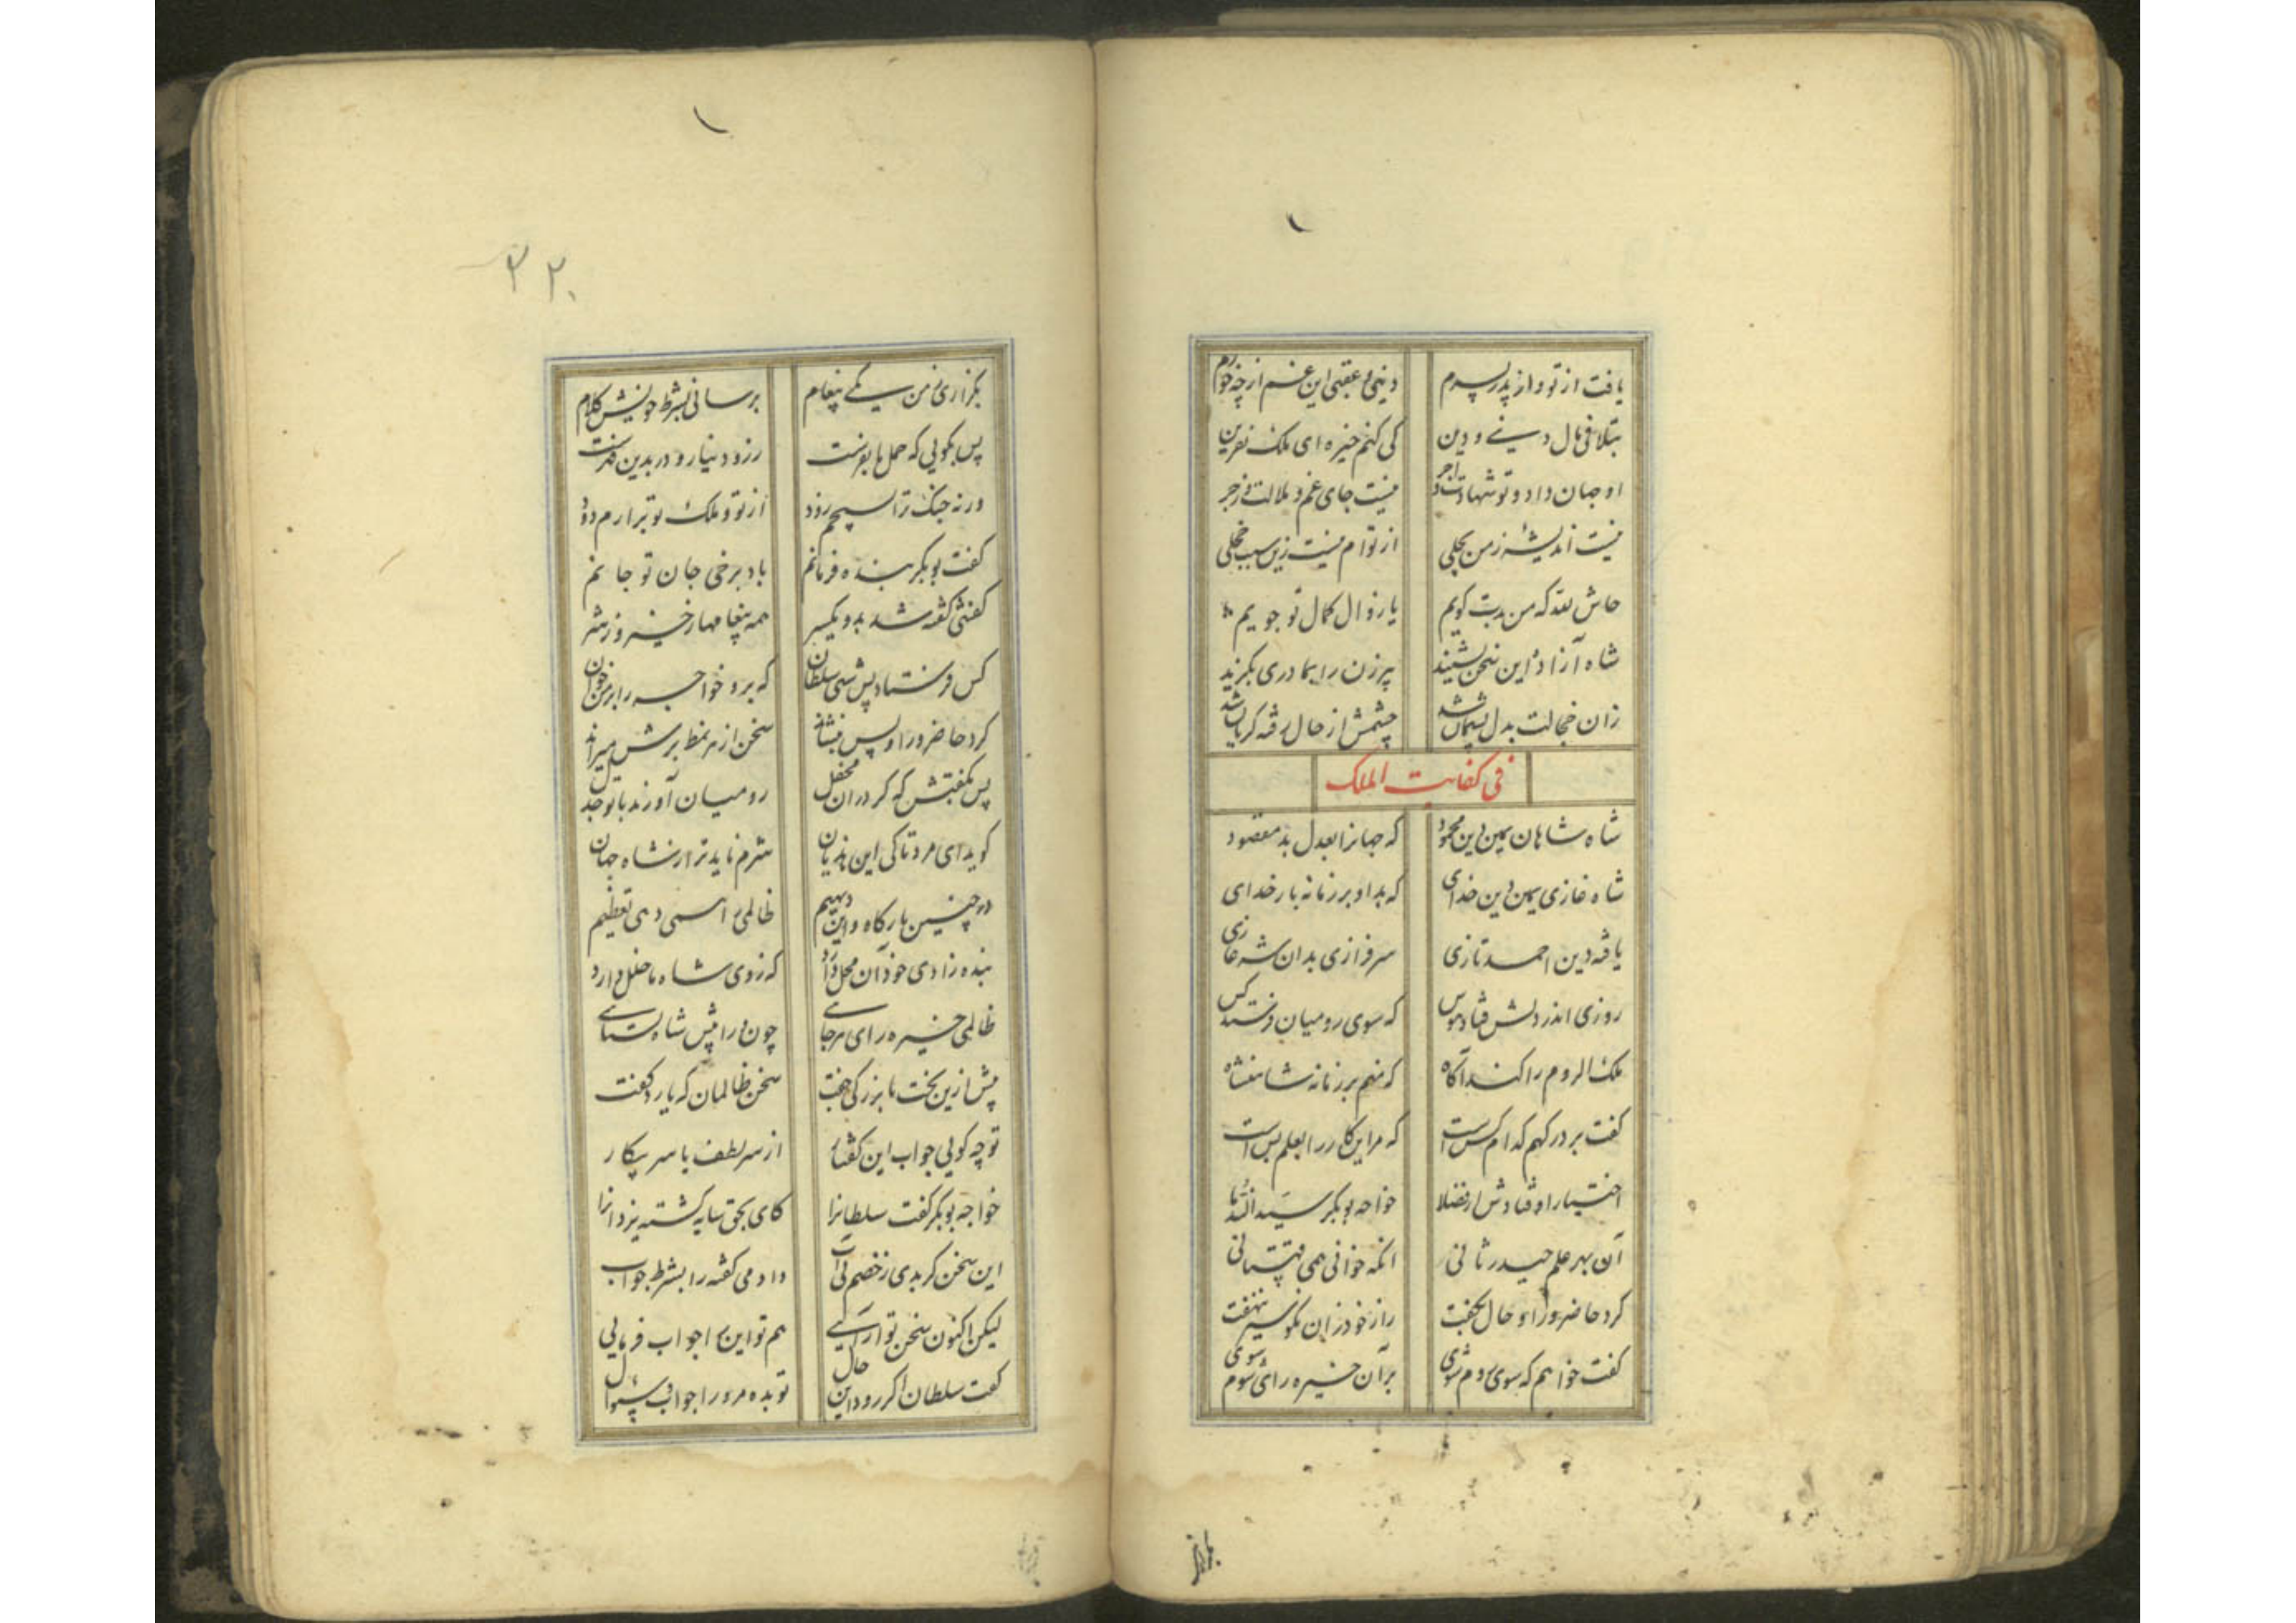 یافت از تو و از پدر پسرم دنیی و عقبی این غم از چه خورم
بتلافی مال دنیی و دین کی کنم خیره ای ملک نفرین
او جهان داد و تو شهادت و اجر نیست جای غم و ملالت و زجر
نیست اندیشه ز من بحلی از توام نیست زین سبب خجلی
حاش لله که من بدت گویم یا زوال کمال تو جویم
شاه آزاده این سخن بشنید پیرزن را بمادری بگزید
زان خجالت بدل پشیمان شد چشمش از حال رفته گریان شد
فی کفایت الملک
شاه شاهان یمین دین محمود که جهانرا بعدل بد مقصود
شاه غازی یمین دین خدای که بد او بر زمانه بار خدای
یافته دین احمد تازی سرفرازی بدان شه غازی
روزی اندر دلش فتاد هوس که سوی رومیان فرستد کس
ملک الروم را کند آگاه که منم بر زمانه شاهنشاه
گفت بر درگهم کدام کس است که مر این کار را بعلم بس است
اختیار اوفتادش از فضلا خواجه بوبکر سید الندما
آن بهر علم حیدر ثانی آنکه خوانی همی قهستانی
کرد حاضر ورا و حال بگفت راز خود زان نکو سیر ننهفت
گفت خواهم که سوی روم شوی بر آن خیره رای شوم شوی
بگزاری ز من یکی پیغام برسانی بشرط خویش کلام
پس بگویی که حمل ها بفرست زر و دینار و در بدین فرست
ورنه جنگ ترا بسیچم زود از تو و ملک تو برارم دود
گفت بوبکر بنده فرمانم باد برخی جان تو جانم
گفتنی گفته شد بدو یکسر همه پیغامها ز خیر و ز شر
کس فرستاد پس شبی سلطان که برو خواجه را بر من خوان
کرد حاضر ورا و پس بنشاند سخن از هر نمط برش میراند
پس بگفتش که گر در آن محفل رومیان آورند با بوجهل
گوید ای مرد تا کی این هذیان شرم ناید ترا ز شاه جهان
در چنین بارگاه و این دیهیم ظالمی را همی دهی تعظیم
بنده زادی خود آن محل دارد که ز وی شاه ما خلل دارد
ظالمی خیره رای هرجایی چون ورا پیش شاه بستایی
پیش ازین تخت با بزرگی جفت سخن ظالمان که یارد گفت
تو چه گویی جواب این گفتار از سر لطف یا سر پیکار
خواجه بوبکر گفت سلطانرا کای بحق سایه گشته یزدانرا
این سخن گر بدی ز خصم تو آب دادمی گفته را بشرط جواب
لیکن اکنون سخن تو آرایی هم تو این را جواب فرمایی
گفت سلطان اگر رود این حال تو بده مر ورا جواب و سؤال
۳۲۰